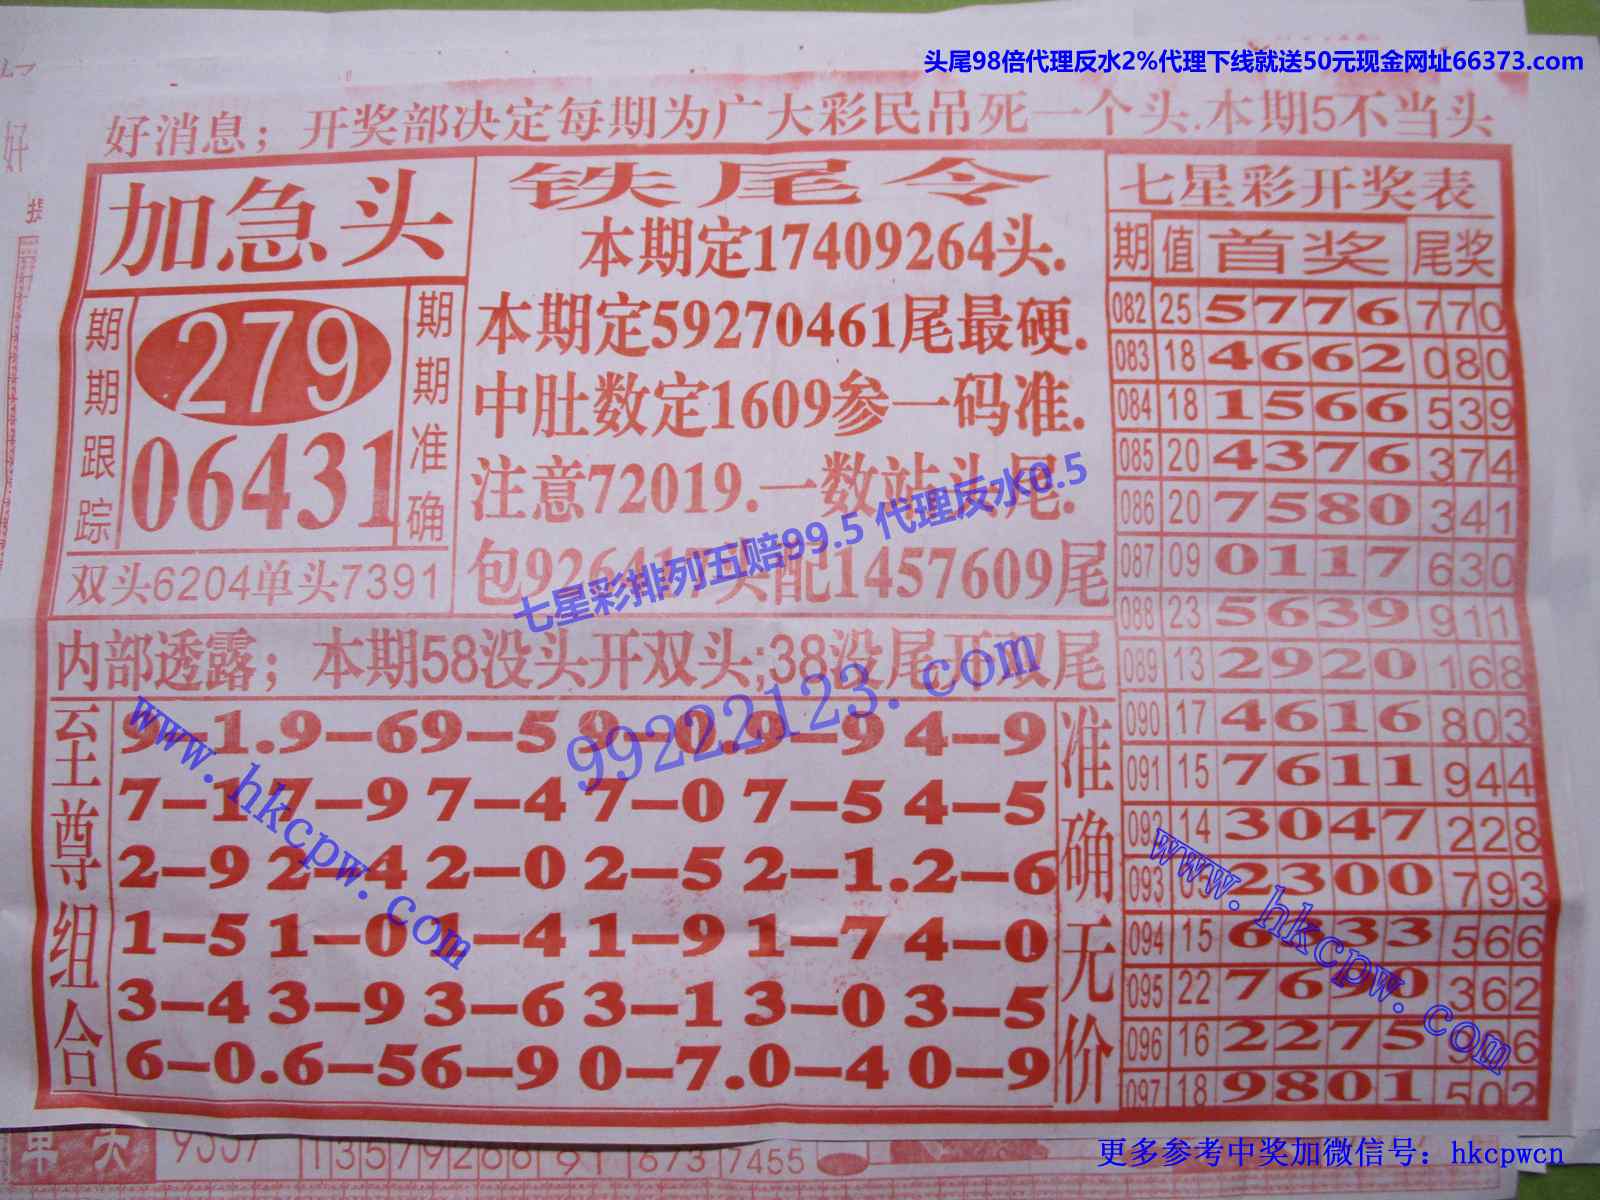 头尾98倍代理反水2%代理下线就送50元现金网址66373.com
好消息；开奖部决定每期为广大彩民吊死一个头.本期5不当头
加急头
期期跟踪
279
06431
期期准确
双头6204单头7391
铁尾令
本期定17409264头.
本期定59270461尾最硬.
中肚数定1609参一码准.
注意72019.一数站头尾.
头配1457609尾
七星彩排列五赔99.5 代理反水0.5
内部透露；本期58没头开双头;38没尾开双尾
99222123.com
www.hkcpw.com
至尊组合
9-1.9-69-5 9-0.9-9 4-9
7-17-9 7-4 7-0 7-5 4-5
2-9 2-4 2-0 2-5 2-1.2-6
1-5 1-0 1-4 1-9 1-7 4-0
3-4 3-9 3-6 3-1 3-0 3-5
6-0.6-56-9 0-7.0-4 0-9
准确无价
七星彩开奖表
期 值 首奖 尾奖
082 25 5776 770
083 18 4662 080
084 18 1566 539
085 20 4376 374
086 20 7580 341
087 09 0117 630
088 23 5639 911
089 13 2920 168
090 17 4616 803
091 15 7611 944
092 14 3047 228
093 2300 793
094 15 6333 566
095 22 7690 362
096 16 2275
097 18 9801 502
www.hkcpw.com
更多参考中奖加微信号：hkcpwcn
7455